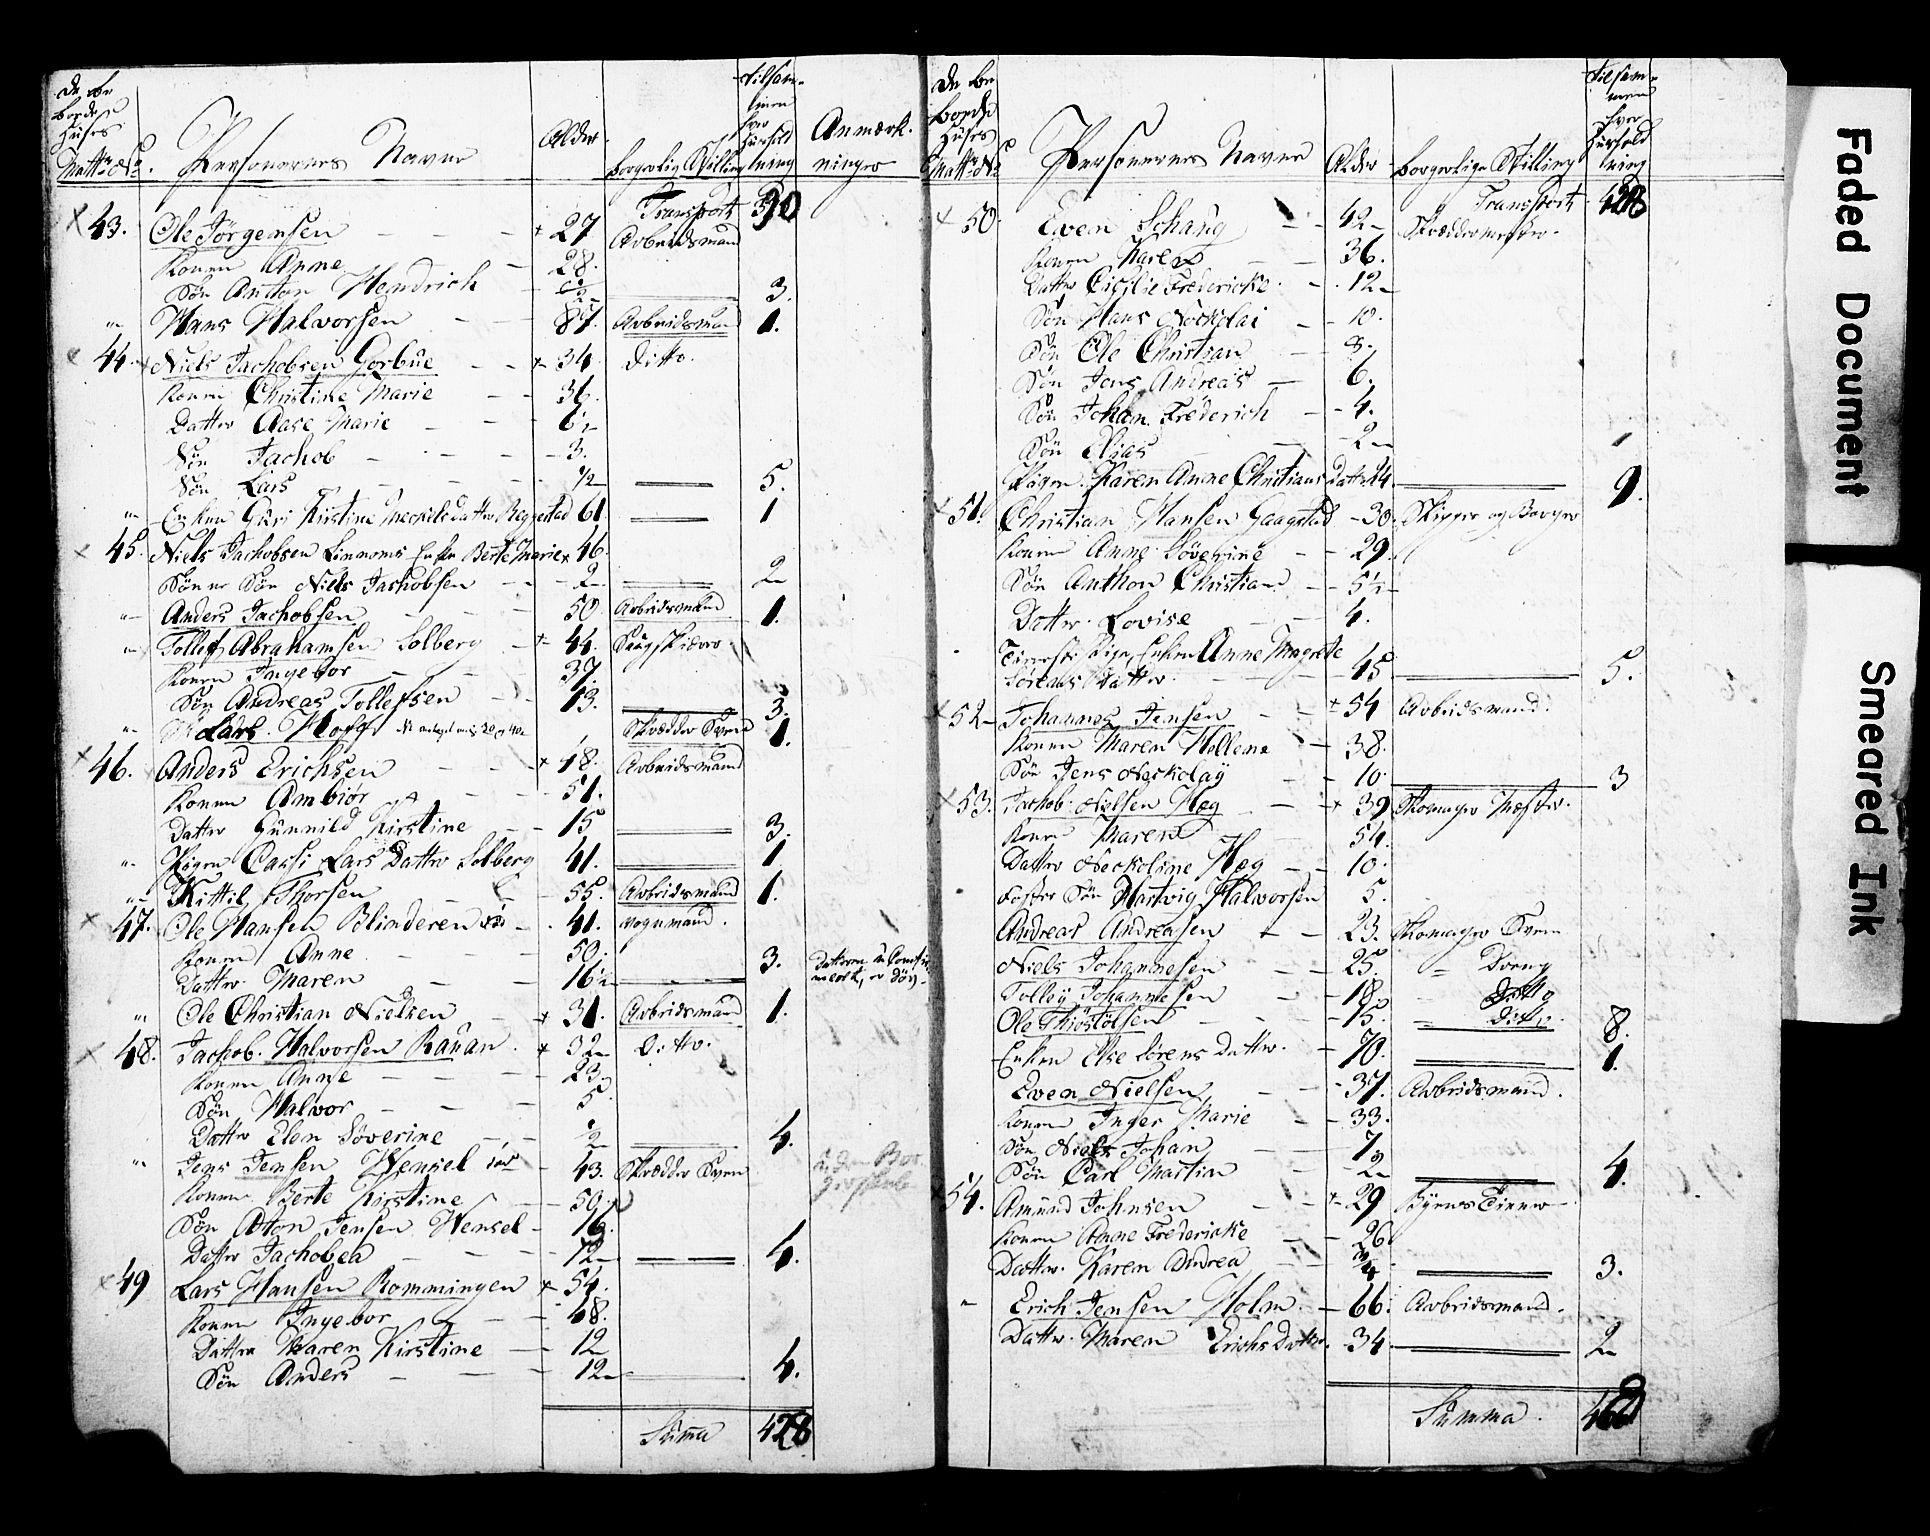 Personernes Navne Alder borgerlig Stilling Anmærk-
ninger
Transport 390
43. Ole Jørgensen 27 Arbeidsmand
Konen Anne 28.
Søn Anton Hendrich 3.
Hans Halvorsen 87. Arbeidsmand 1.
44 Niels Jachobsen Gorbue 34. ditto.
Konen Christine Marie 36.
Datter Aase Marie
Søn Jachob 3.
Søn Lars 1/2 5.
Enken Guri Kirstine Neckelsdatter Reggestad 61 1
45. Niels Jachobsen Linnoms Enke Berte Marie 46.
Sønne Søn Niels Jachobsen 2 2
Anders Jachobsen 50. Arbeidsmand 1.
Tollef Abrahamsen Solberg 44. Saugskiærer
Konen Ingebor 37.
Søn Andreas Tollefsen 13. 3.
Lars Hoff Skrædder Svend 1.
46. Anders Erichsen 48. Arbeidsmand
Konen Ambiør 51.
Datter Gunnild Kirstine 15 3.
Pigen Carsi Lars Datter Solberg 41. 1
Kittil Thorsen 55. Arbeidsmand 1.
47. Ole Hansen Blinderen 41. vognmand.
Konen Anne 50.
Datter Maren 16 1/2 3.
Ole Christian Nielsen 31. Arbeidsmand 1.
48. Jachob Halvorsen Rauan 32 ditto.
Konen Anne 23
Søn Halvor 5
Datter Elen Søverine 1/2 4.
Jens Jensen Hensel 43. Skrædder Svend
Konen Berte Kirstine 50
Søn Aton Jensen Hensel 16.
Datter Jachobea 12 4.
49 Lars Hansen Rommingen 54.
Konen Ingebor 48.
Datter Maren Kirstine 12
Søn Anders 12 4.
Summa 428
Personernes Navne Alder borgerlige Stilling
Transport 428
50. Even Schaug 42 Skræddermester.
Konen Karen 36.
Datter Cicilie Fredericke 12
Søn Hans Nockolai 10.
Søn Ole Christian 8.
Søn Jens Andreas 6.
Søn Johan Frederich 4.
Søn Elias 2
Pigen Karen Anne Christians Datter 24. 9.
51. Christian Hansen Gaagstad 30. Skipper og Borger
Konen Anne Søverine 29.
Søn Anthon Christian 5 1/2
Datter Lovise 4.
Tieneste Pige, Enken Anne Magrete
Sørens Datter 45 5.
52 Johannes Jensen 54 Arbeidsmand.
Konen Maren Hellene 38.
Søn Jens Neckolay 10. 3
53. Jachob Nielsen Hæg 39 Skomager Mester.
Konen Maren 54.
Datter Neckoline Hæg 10.
Foster Søn Hartvig Halvorsen 5.
Andreas Andreasen 23. Skomager Svend
Niels Johannesen 25. " Dreng
Tolley Johannesen 18 " ditto
Ole Thiøstølsen 15. " ditto. 8.
Enken Else Sørens Datter. 70. 1.
Even Nielsen 37. Arbeidsmand.
Konen Inger Marie 33.
Søn Niels Johan 7
Søn Carl Martin 2 4.
54. Amund Johnsen 29 Byens Tiener
Konen Anne Fredericke 26
Datter Karen Andrea 3/4 3.
Erich Jensen Holm 66. Arbeidsmand.
Datter Maren Erichs Datter 34 2
Summa.
Faded Document
Smeared Ink